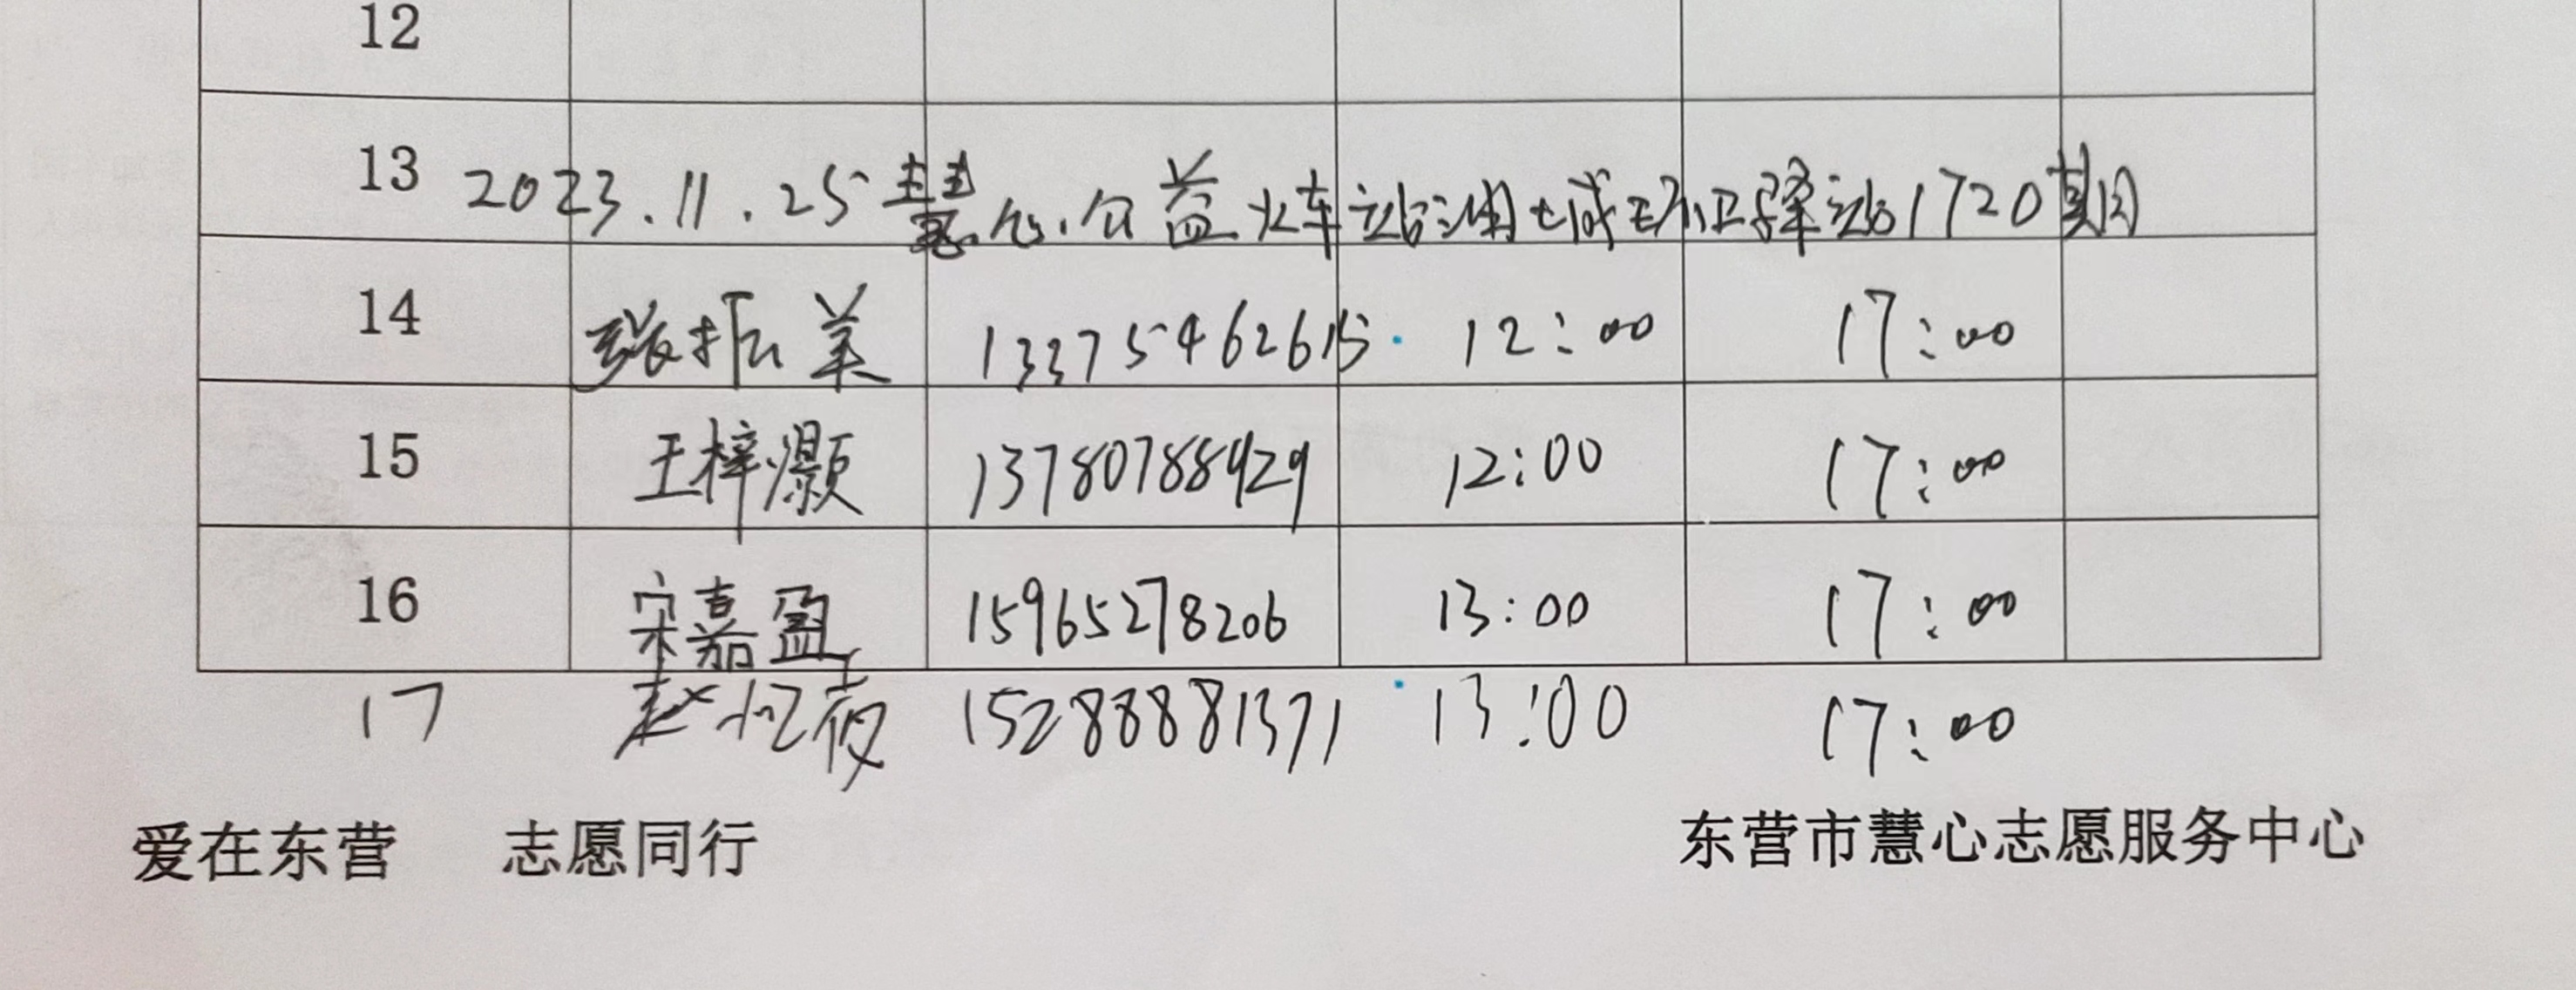 12
13 2023.11.25慧心公益火车站湖城环卫驿站1720期
14 张振美 13375462615 12:00 17:00
15 王梓灏 13780788929 12:00 17:00
16 宋嘉盈 15965278206 13:00 17:00
17 赵忆夜 15288881371 13:00 17:00
爱在东营 志愿同行 东营市慧心志愿服务中心